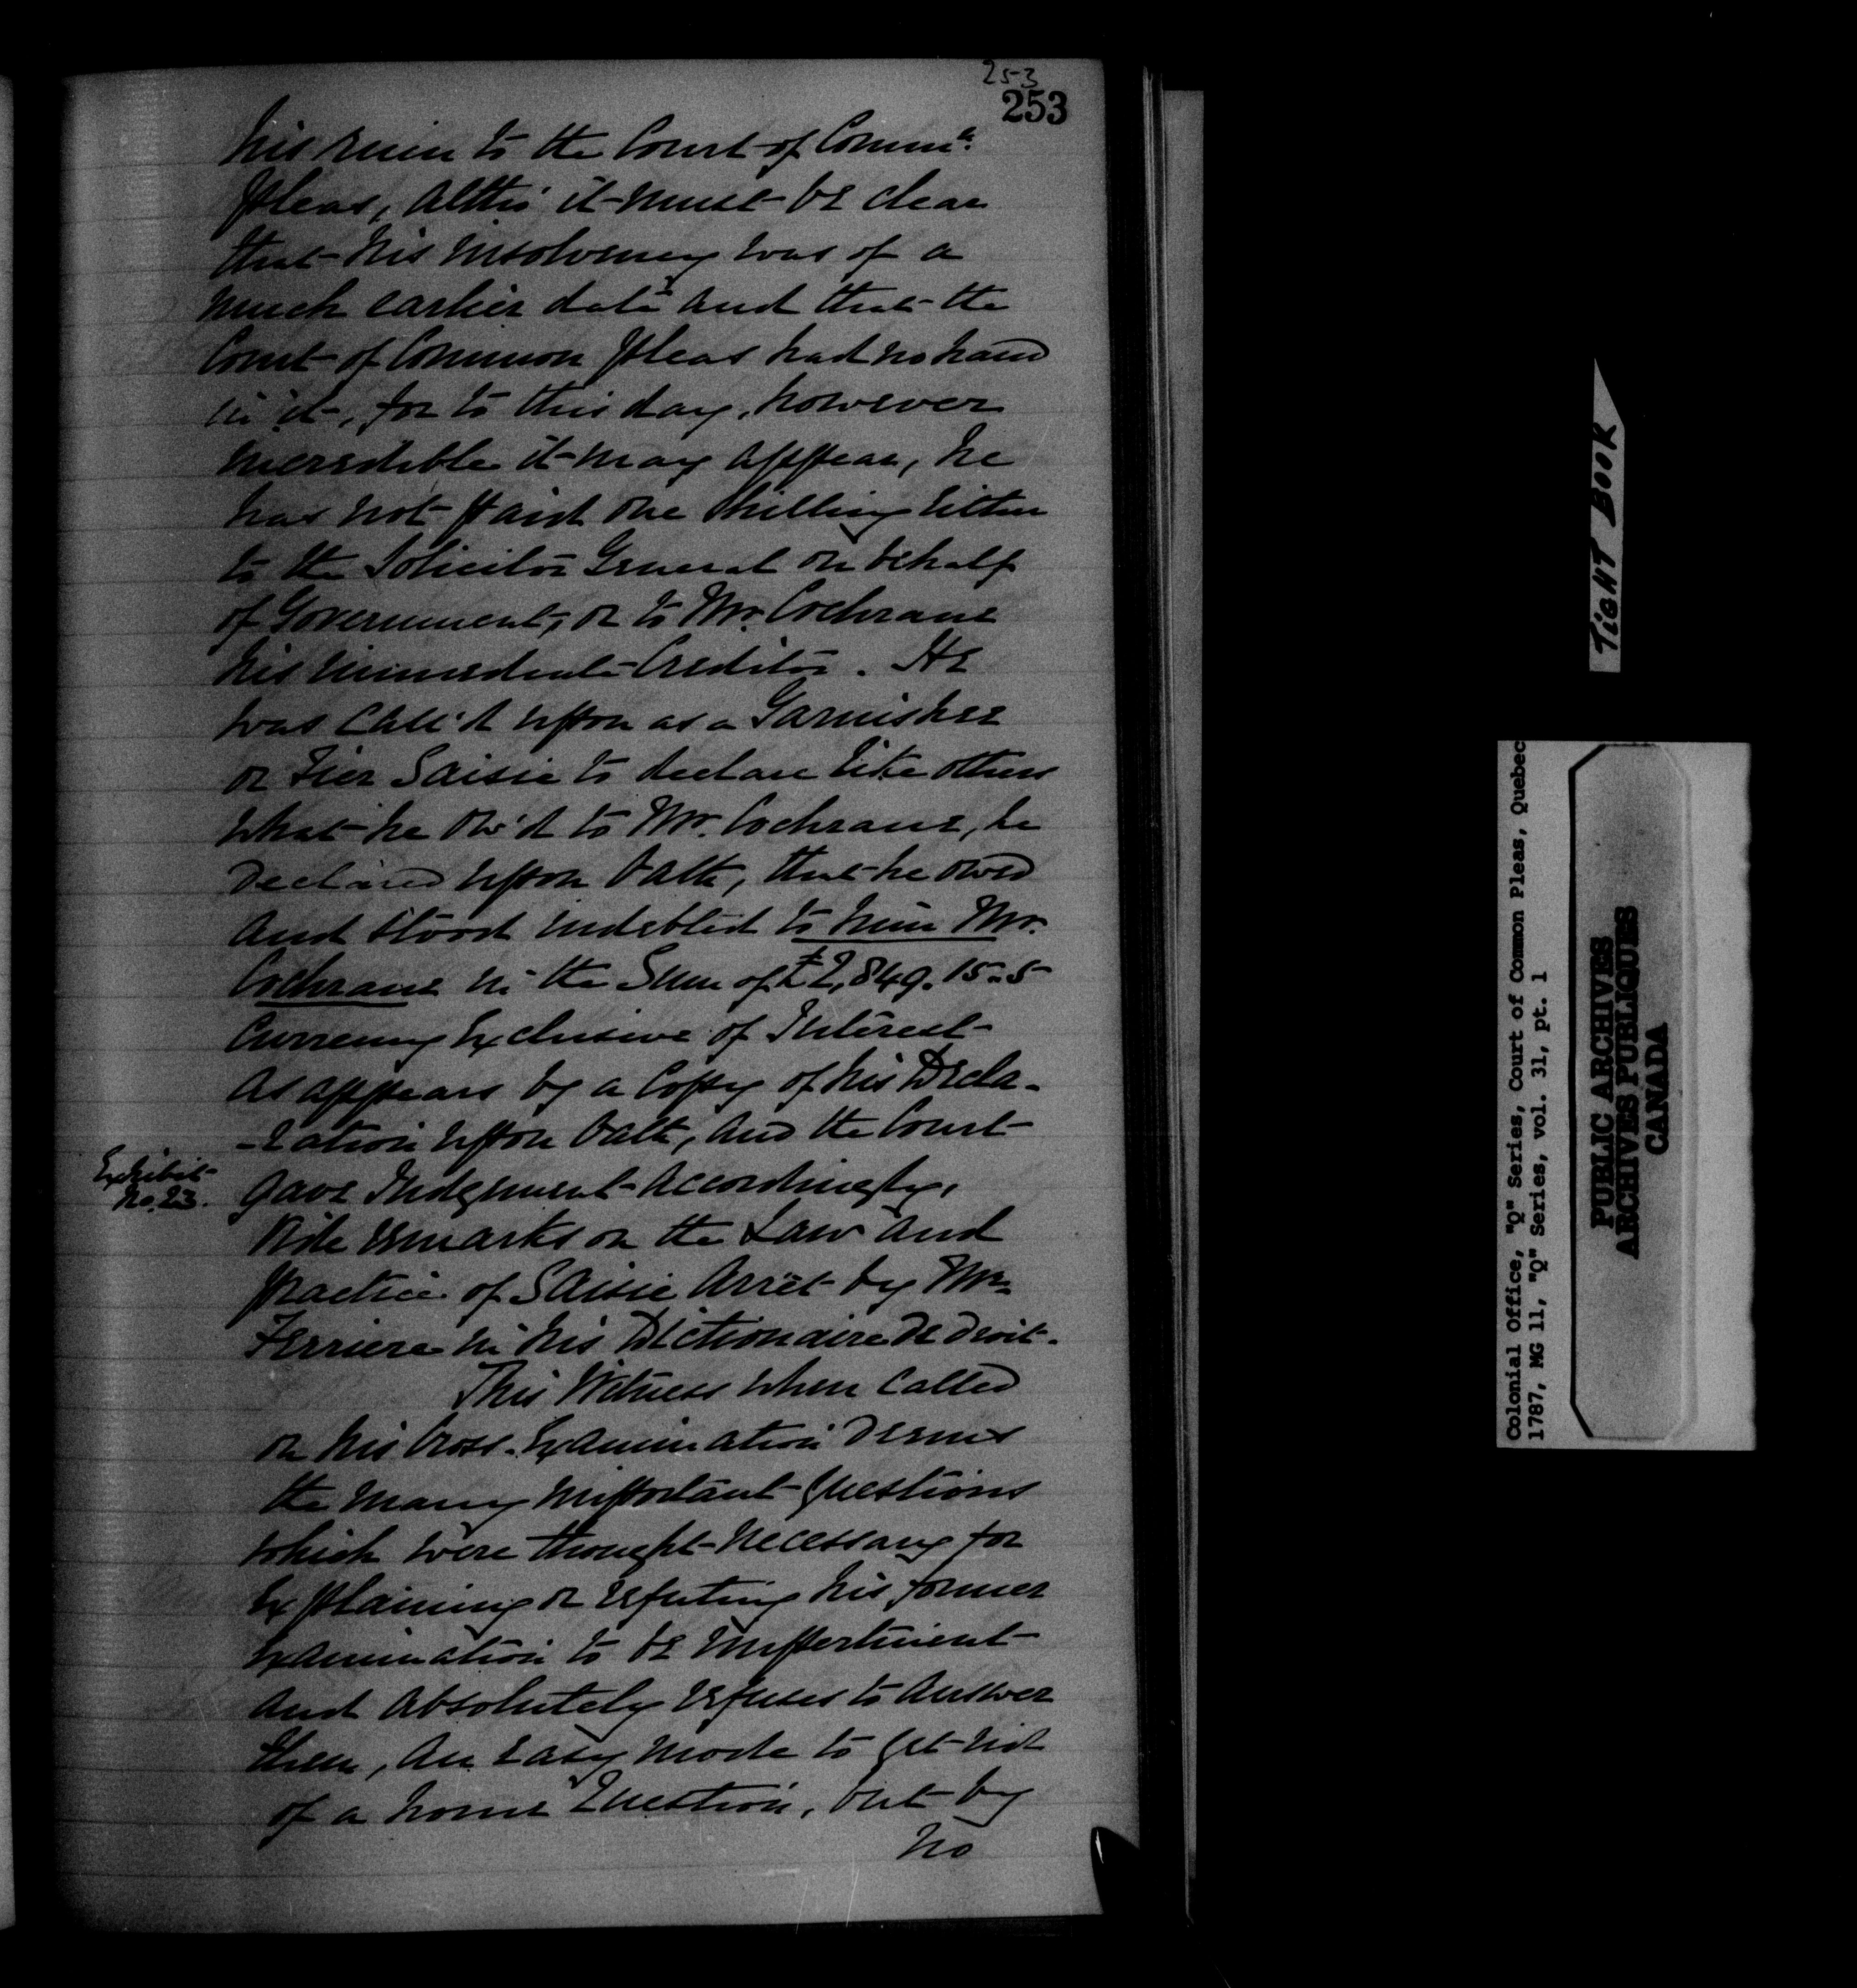 253
253
his ruin to the Court of Commn.
Pleas, altho' it must be clear
that his insolvency was of a
much earlier date and that the
Court of Common Pleas had no hand
in it, for to this day, however
incredible it may appear, he
has not paid one shilling either
to the Solicitor General on behalf
of Government, or to Mr. Cochrane
his immediate Creditor. He
was call'd upon as a Garnishee
or Tier Saisie to declare like others
what he ow'd to Mr. Cochrane, he
declared upon Oath, that he owed
and stood indebted to him Mr.
Cochrane in the Sum of £2,849.15.5
Currency Exclusive of Interest
as appears by a Copy of his Decla-
-ration upon Oath, and the Court
Exhibit
No. 23.
gave Judgement accordingly,
Vide remarks on the Law and
practice of Saisie Arrêt by Mr.
Ferriere in his Dictionaire de droit.
This Witness when called
on his Cross-Examination deems
the many important Questions
which were thought necessary for
Explaining or refuting his former
Examination to be impertinent
and absolutely refuses to answer
them, an easy mode to get rid
of a home Question, but by
no
TIGHT BOOK
Colonial Office, "Q" Series, Court of Common Pleas, Quebec
1787, MG 11, "Q" Series, vol. 31, pt. 1
PUBLIC ARCHIVES
ARCHIVES PUBLIQUES
CANADA